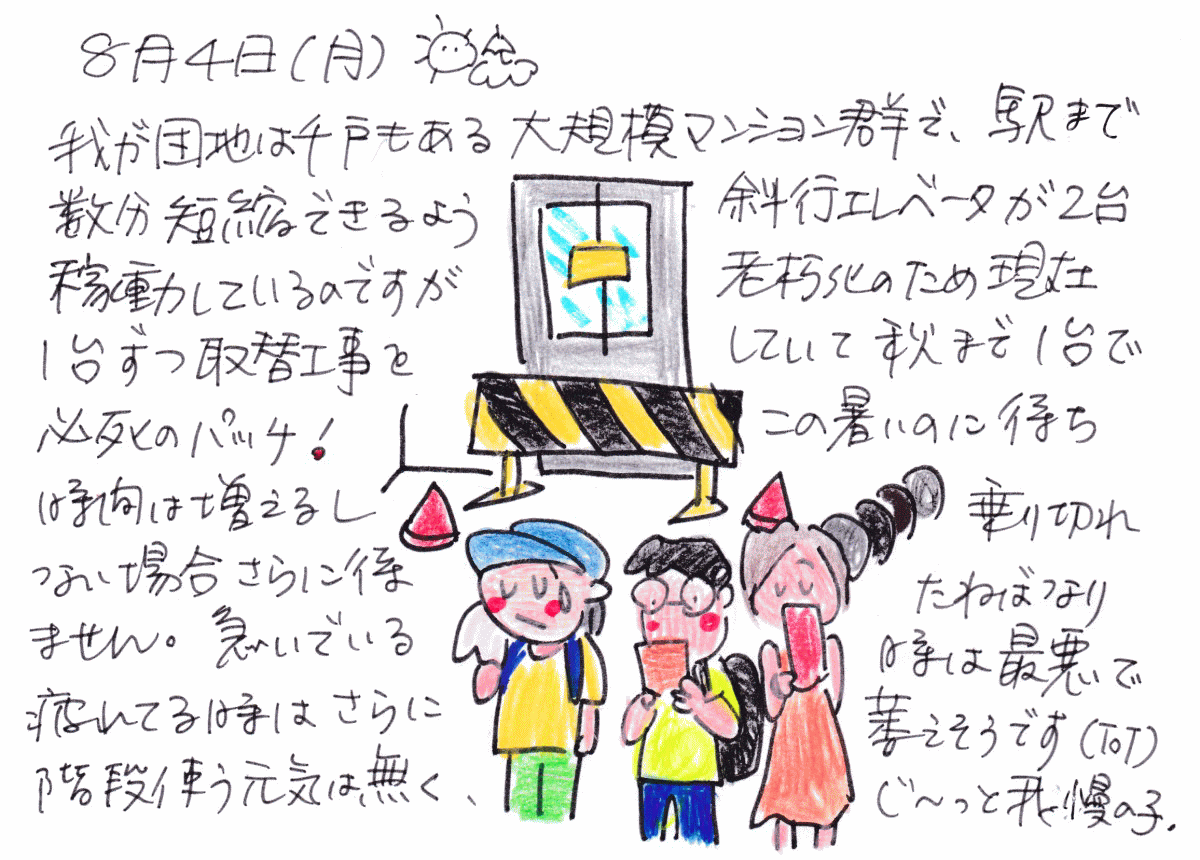 8月4日(月)
我が団地は千戸もある大規模マンション群で、駅まで
数分短縮できるよう 斜行エレベータが2台
稼動しているのですが 老朽化のため現在
1台ずつ取替工事を していて秋まで1台で
必死のパッチ! この暑いのに待ち
時間は増えるし 乗り切れ
ない場合さらに待 たねばなり
ません。急いでいる 時は最悪で
疲れてる時はさらに 萎えそうです(ToT)
階段使う元気は無く、 じ〜っと我慢の子.